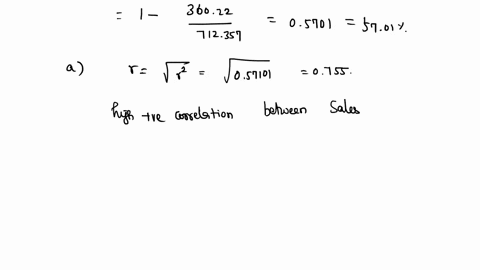 = 1 - 360.22 / 712.357 = 0.5701 = 57.01%.
a) r = √r² = √0.57101 = 0.755.
high +ve correlation between Sales